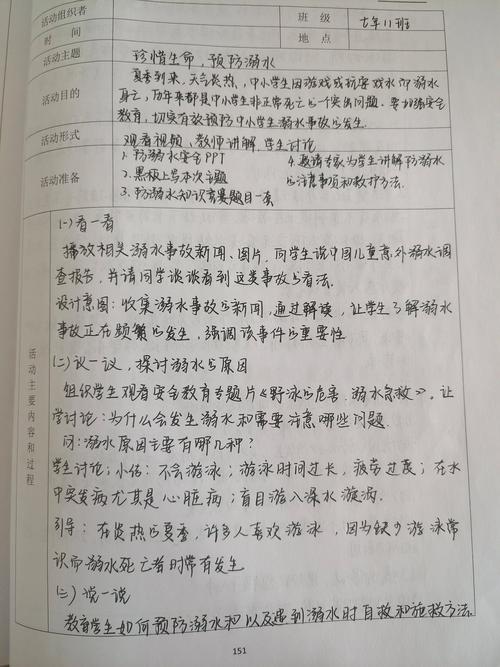 活动组织者
班 级
七年11班
时 间
地 点
活动主题
珍惜生命,预防溺水
活动目的
夏季到来,天气炎热,中小学生因游戏或玩耍戏水而溺水
身亡,历年来都是中小学生非正常死亡的一个突出问题。要加强安全
教育,切实有效预防中小学生溺水事故的发生.
活动形式
观看视频、教师讲解、学生讨论
活动准备
1. 防溺水安全PPT
2. 黑板上写本次主题
3. 防溺水知识竞赛题目一套
4. 邀请专家为学生讲解防溺水
的注意事项和救护方法.
活动主要内容和过程
(一)看一看
播放相关溺水事故新闻、图片,向学生说中国儿童意外溺水调
查报告,并请同学谈谈看到这类事故的看法.
设计意图:收集溺水事故的新闻,通过解读,让学生了解溺水
事故正在频繁的发生,强调该事件的重要性
(二)议一议,探讨溺水的原因
组织学生观看安全教育专题片《野泳的危害.溺水急救》,让
学讨论:为什么会发生溺水和需要注意哪些问题.
问:溺水原因主要有哪几种?
学生讨论;小结:不会游泳;游泳时间过长,疲劳过度;在水
中突发病尤其是心脏病;盲目游入深水漩涡.
引导:在炎热的夏季,许多人喜欢游泳,因为缺少游泳常
识而溺水死亡者时常有发生
(三)说一说
教育学生如何预防溺水和以及遇到溺水时自救和施救方法.
151